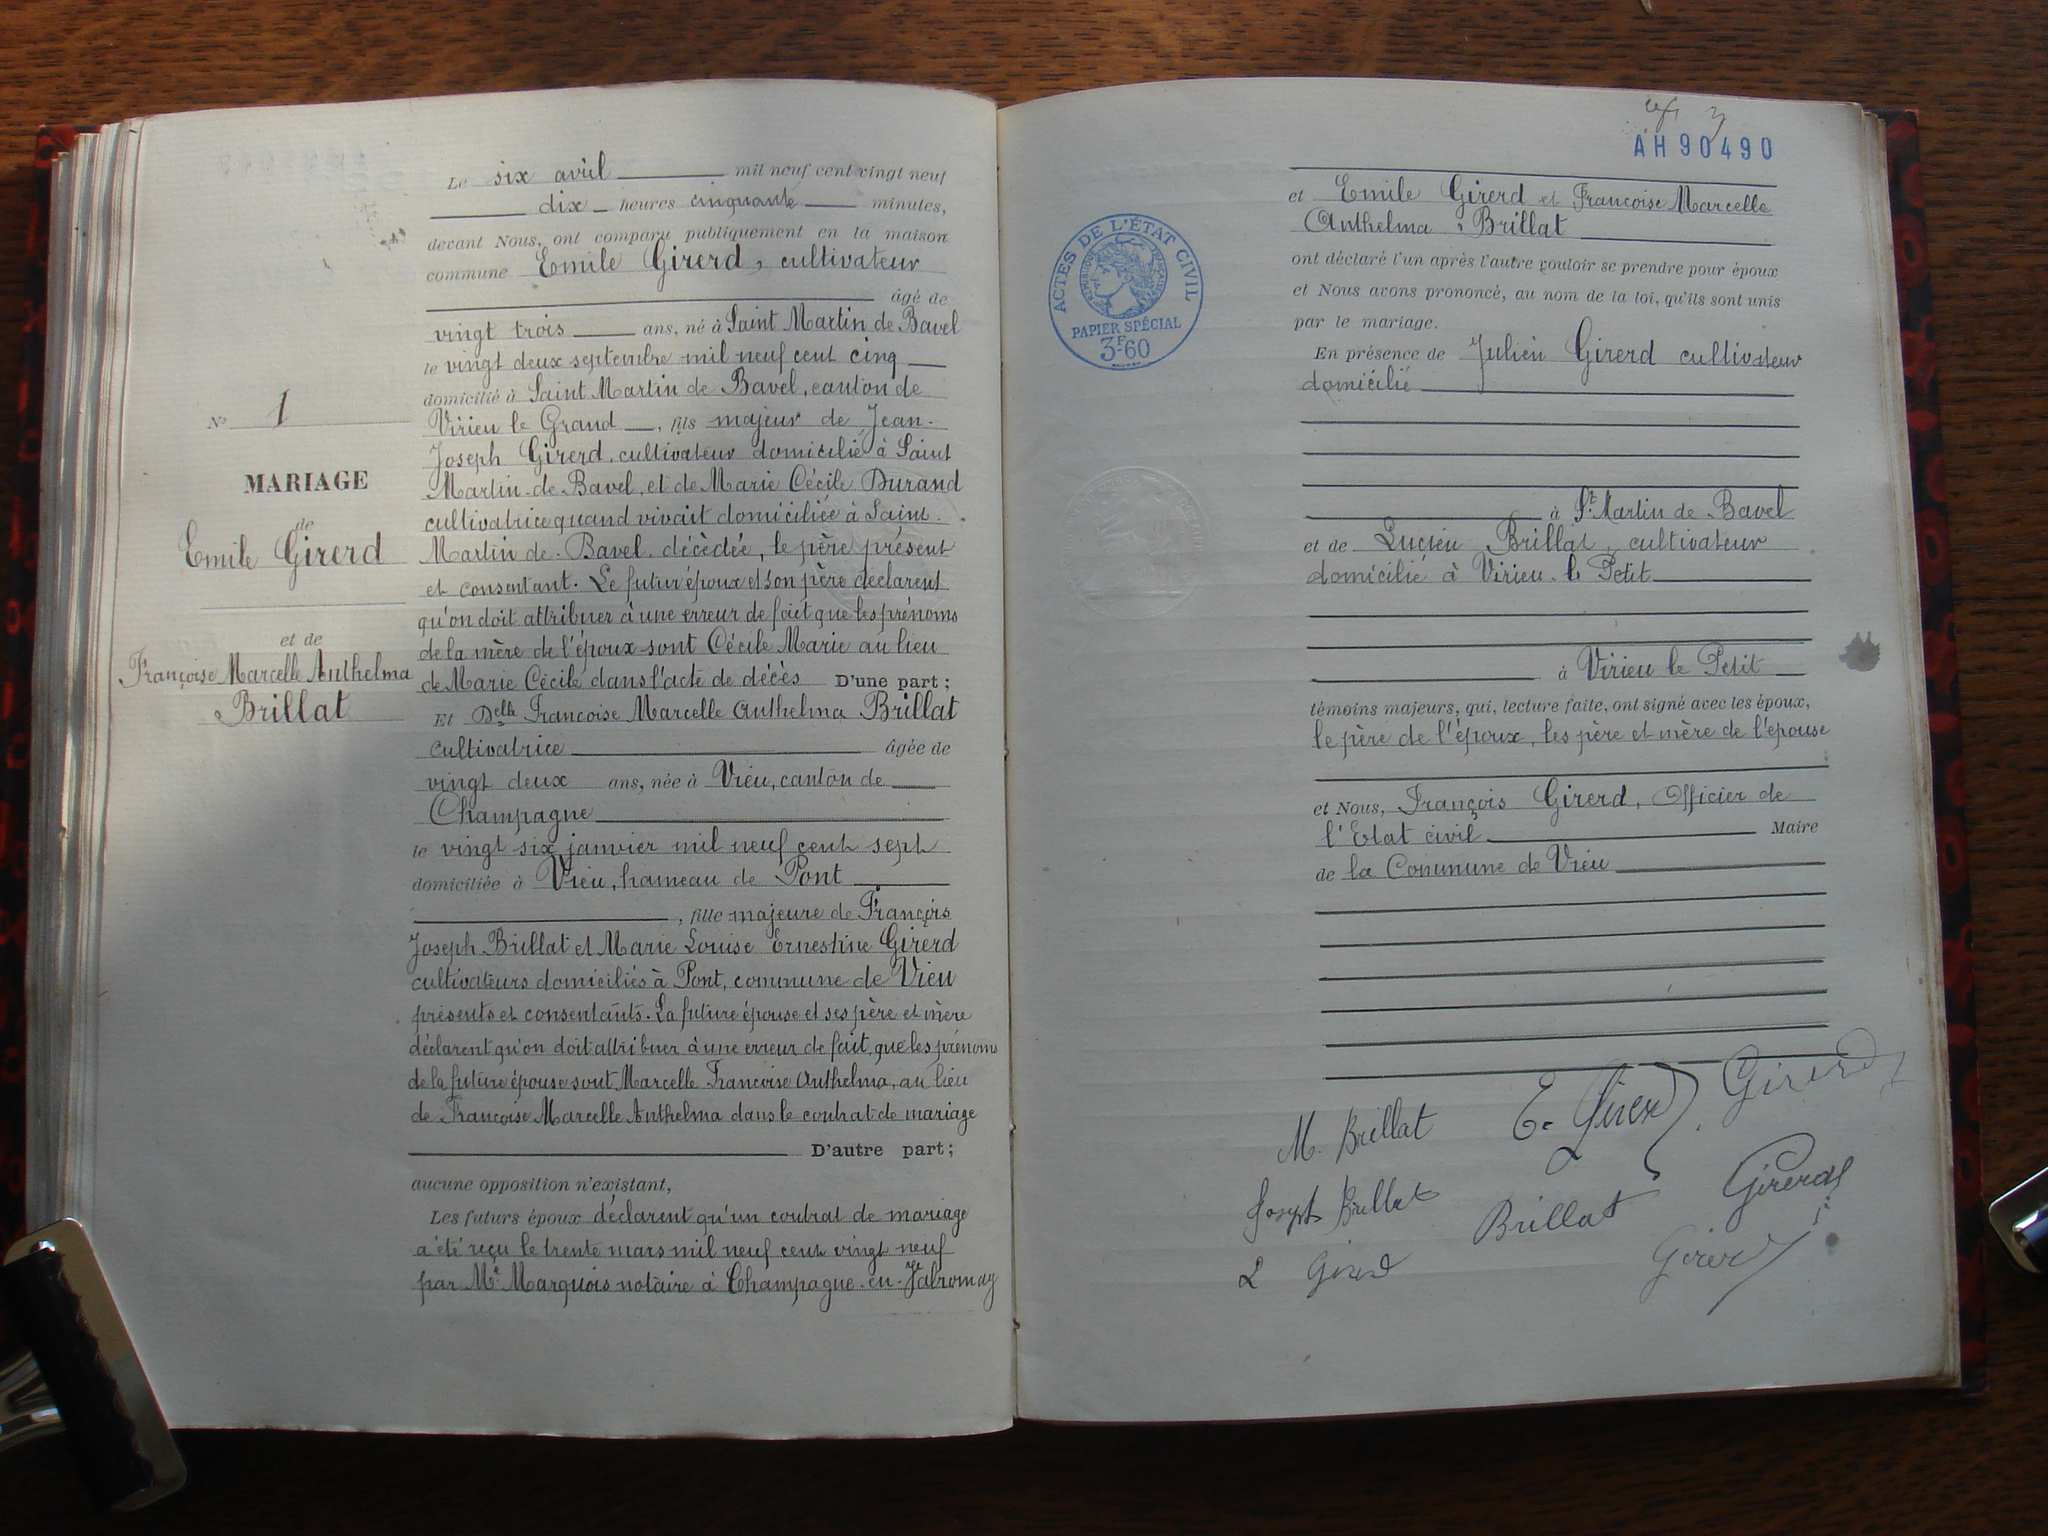 Le six avril mil neuf cent vingt neuf
dix heures cinquante minutes,
devant Nous, ont comparu publiquement en la maison
commune Emile Girerd, cultivateur
âgé de
vingt trois ans, né à Saint Martin de Bavel
le vingt deux septembre mil neuf cent cinq
domicilié à Saint Martin de Bavel, canton de
Virieu le Grand, fils majeur de Jean-
Joseph Girerd, cultivateur domicilié à Saint
Martin-de-Bavel, et de Marie Cécile Durand
cultivatrice quand vivait domiciliée à Saint-
Martin de-Bavel, décèdée, le père présent
et consentant. Le futur époux et son père déclarent
qu'on doit attribuer à une erreur de fait que les prénoms
de la mère de l'époux sont Cécile Marie au lieu
de Marie Cécile dans l'acte de décès D'une part;
Et Delle Françoise Marcelle Anthelma Brillat
cultivatrice âgée de
vingt deux ans, née à Vieu, canton de
Champagne
le vingt six janvier mil neuf cent sept
domiciliée à Vieu, hameau de Pont
, fille majeure de François
Joseph Brillat et Marie Louise Ernestine Girerd
cultivateurs domiciliés à Pont, commune de Vieu
présents et consentants. La future épouse et ses père et mère
déclarent qu'on doit attribuer à une erreur de fait, que les prénoms
de la future épouse sont Marcelle Françoise Anthelma, au lieu
de Françoise Marcelle Anthelma dans le contrat de mariage
D'autre part;
aucune opposition n'existant,
Les futurs époux déclarent qu'un contrat de mariage
a été reçu le trente mars mil neuf cent vingt neuf
par Me Marquois notaire à Champagne-en-Valromay
N° 1
MARIAGE
de
Emile Girerd
et de
Françoise Marcelle Anthelma
Brillat
AH 90490
ACTES DE L'ÉTAT CIVIL
PAPIER SPÉCIAL
3F60
et Emile Girerd et Françoise Marcelle
Anthelma Brillat
ont déclaré l'un après l'autre vouloir se prendre pour époux
et Nous avons prononcé, au nom de la loi, qu'ils sont unis
par le mariage.
En présence de Julien Girerd cultivateur
domicilié
à St Martin de Bavel
et de Lucien Brillat, cultivateur
domicilié à Virieu-le Petit
à Virieu le Petit
témoins majeurs, qui, lecture faite, ont signé avec les époux,
le père de l'époux, les père et mère de l'épouse
et Nous, François Girerd, Officier de
l'Etat civil Maire
de la Commune de Vieu
M. Brillat E. Girerd Girerd
Joseph Brillat Brillat Girerd
L Girerd Girerd